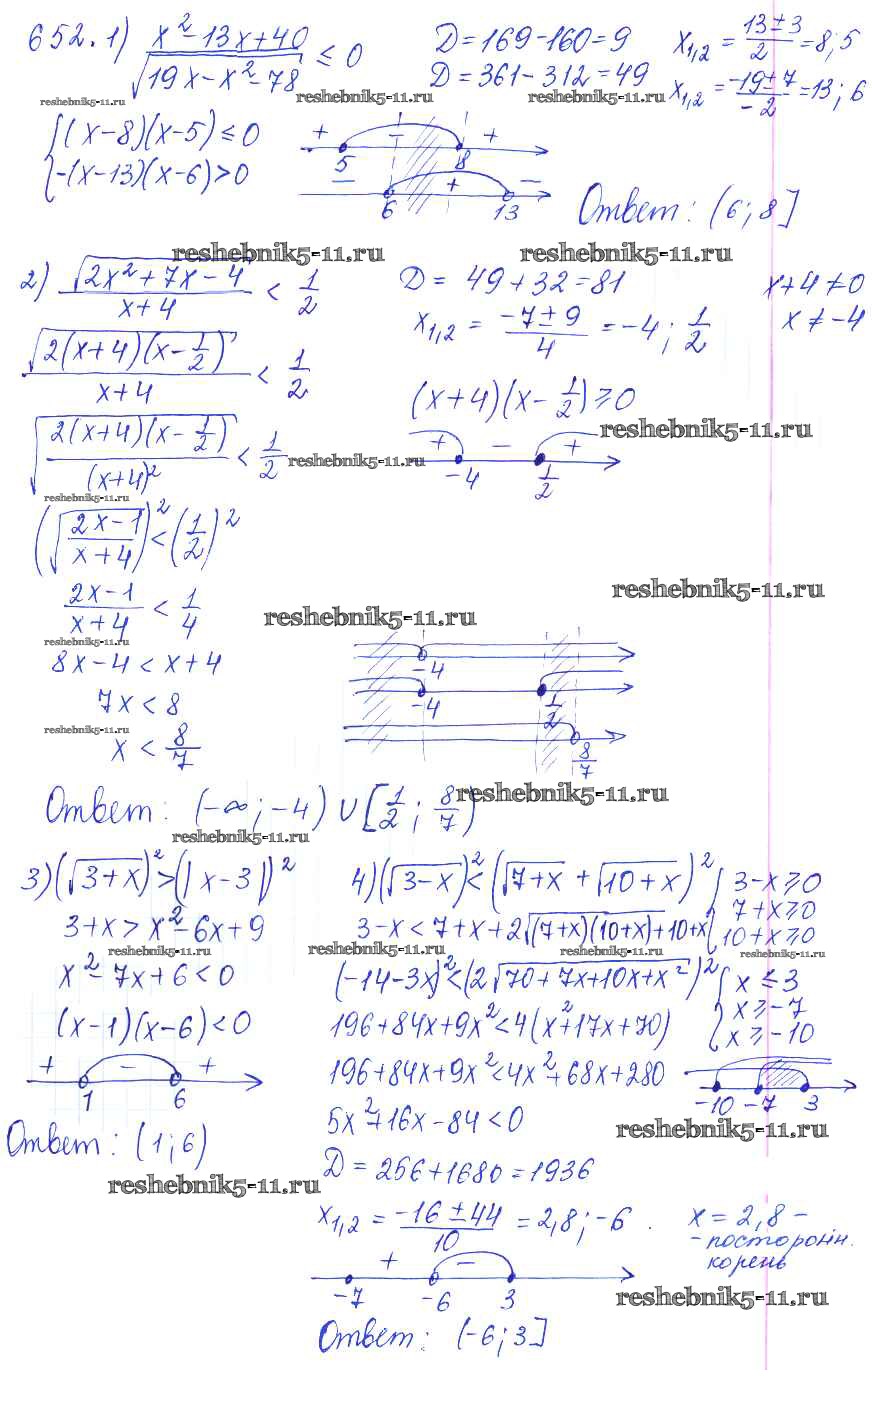 652. 1) (x² - 13x + 40)/√(19x - x² - 78) ≤ 0   D = 169 - 160 = 9   x₁,₂ = (13 ± 3)/2 = 8; 5
D = 361 - 312 = 49   x₁,₂ = (-19 ± 7)/-2 = 13; 6
reshebnik5-11.ru reshebnik5-11.ru reshebnik5-11.ru
{(x-8)(x-5) ≤ 0   + - +
5 8
{-(x-13)(x-6) > 0   - + -
6 13
Ответ: (6; 8]
reshebnik5-11.ru reshebnik5-11.ru
2) √(2x² + 7x - 4)/(x+4) < 1/2   D = 49 + 32 = 81   x+4 ≠ 0
x₁,₂ = (-7 ± 9)/4 = -4; 1/2   x ≠ -4
√(2(x+4)(x - 1/2))/(x+4) < 1/2
(x+4)(x - 1/2) ≥ 0
reshebnik5-11.ru
√(2(x+4)(x - 1/2)/(x+4)²) < 1/2   + - +
reshebnik5-11.ru
-4 1/2
reshebnik5-11.ru
(√((2x-1)/(x+4)))² < (1/2)²
reshebnik5-11.ru
(2x-1)/(x+4) < 1/4
reshebnik5-11.ru
reshebnik5-11.ru
8x - 4 < x + 4   -4
7x < 8   -4 1/2
reshebnik5-11.ru
x < 8/7   8/7
Ответ: (-∞; -4) ∪ [1/2; 8/7)
reshebnik5-11.ru
reshebnik5-11.ru
3) (√(3+x))² > (|x-3|)²   4) (√(3-x))² < (√(7+x) + √(10+x))²   {3-x ≥ 0
7+x ≥ 0
10+x ≥ 0
3+x > x² - 6x + 9   3-x < 7+x+2√((7+x)(10+x))+10+x
reshebnik5-11.ru reshebnik5-11.ru reshebnik5-11.ru reshebnik5-11.ru
x² - 7x + 6 < 0   (-14-3x)² < (2√(70+7x+10x+x²))²   {x ≤ 3
x ≥ -7
x ≥ -10
(x-1)(x-6) < 0   196+84x+9x² < 4(x²+17x+70)
+ - +   196+84x+9x² < 4x²+68x+280
1 6   -10 -7 3
5x² + 16x - 84 < 0
reshebnik5-11.ru
Ответ: (1; 6)
D = 256 + 1680 = 1936
reshebnik5-11.ru
x₁,₂ = (-16 ± 44)/10 = 2,8; -6.   x = 2,8 -
- посторонн.
корень
+ -
-7 -6 3
reshebnik5-11.ru
Ответ: (-6; 3]